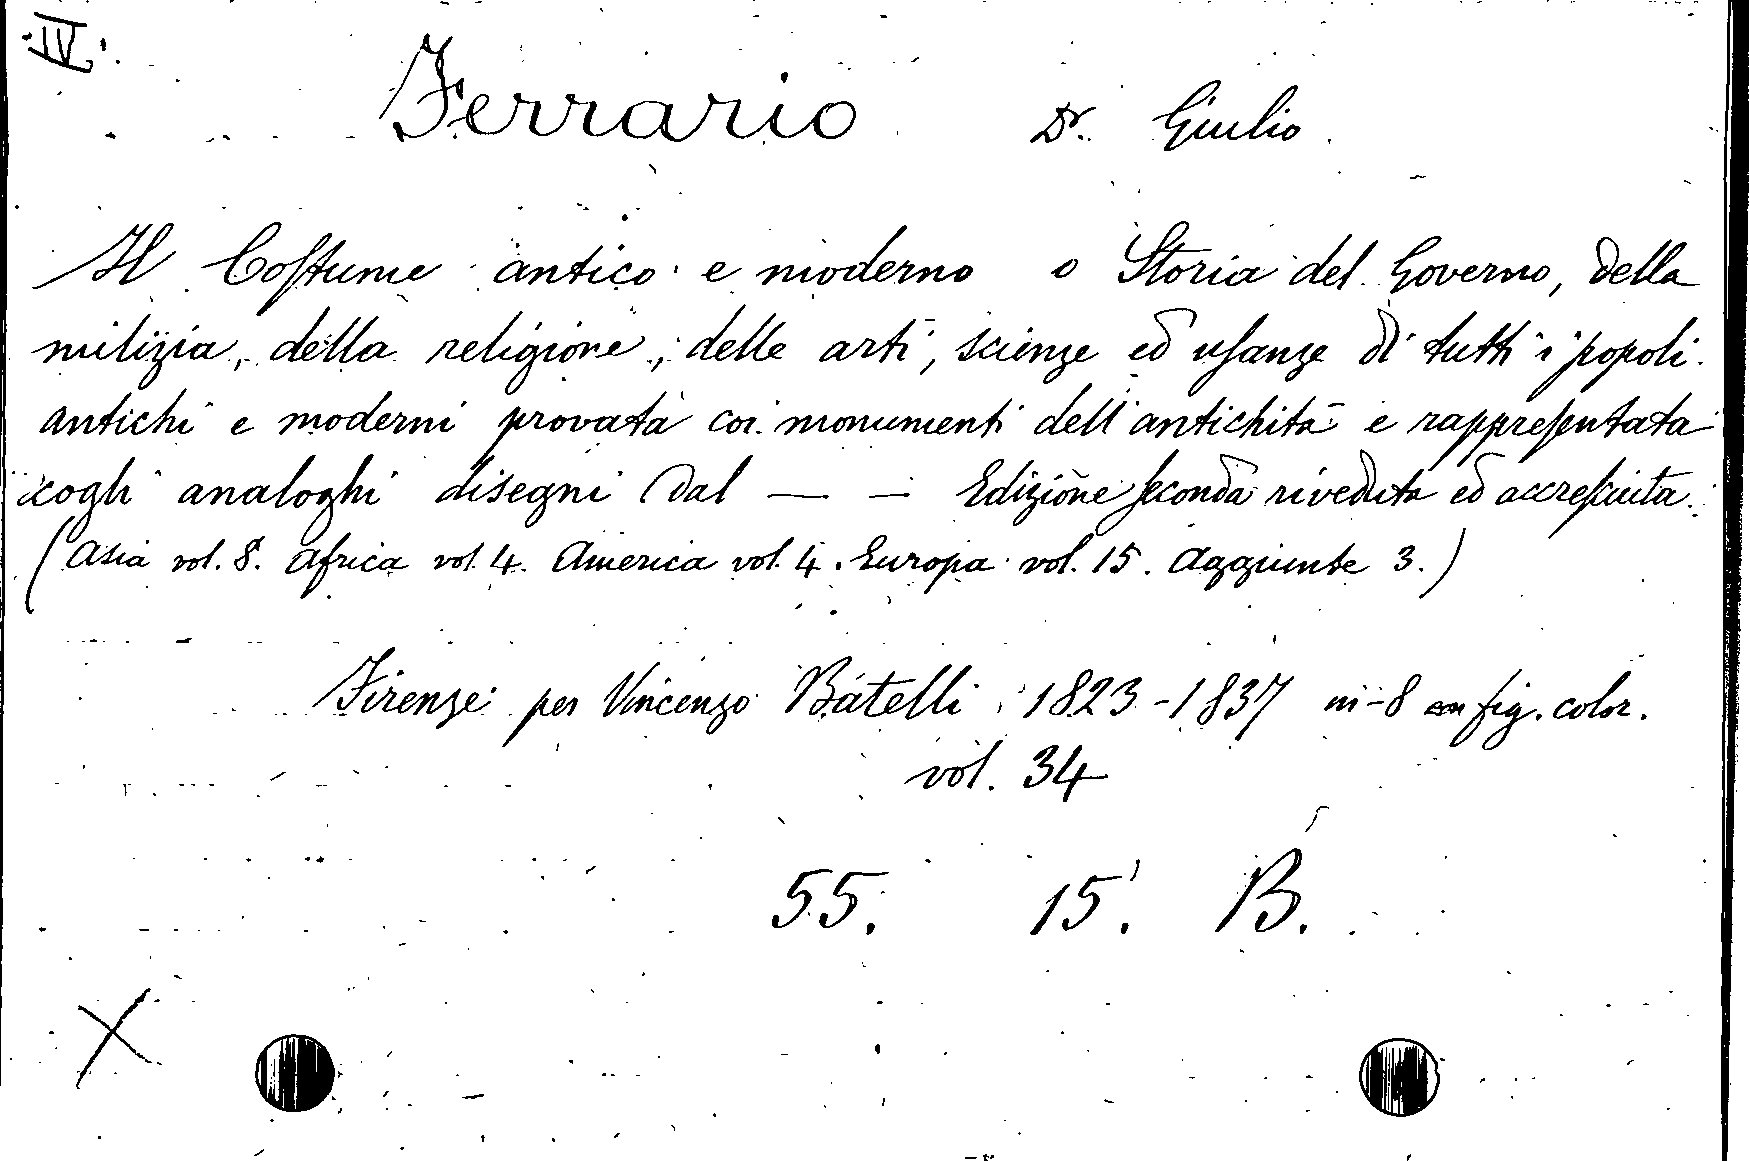 IV.
Ferrario Dr. Giulio.
Il Coſtume antico e moderno o Storia del Governo, della
milizia, della religione, delle arti, scienze ed uſanze di tutti i popoli
antichi e moderni provata coi monumenti dell'antichità e rappreſentata
cogli analoghi disegni dal — — Edizione ſeconda riveduta ed accreſciuta.
(Asia vol. 8. Africa vol. 4. America vol. 4. Europa vol. 15. Aggiunte 3.)
Firenze per Vincenzo Batelli 1823-1837 in-8 con fig. color.
vol. 34
55. 15. B.
X